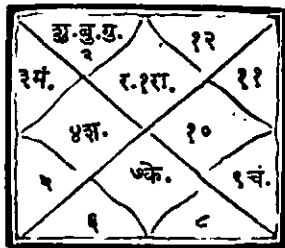 शु.बु.गु.
२
१२
३मं.
र.१रा.
११
४श.
१०
५
७के.
९चं.
६
८